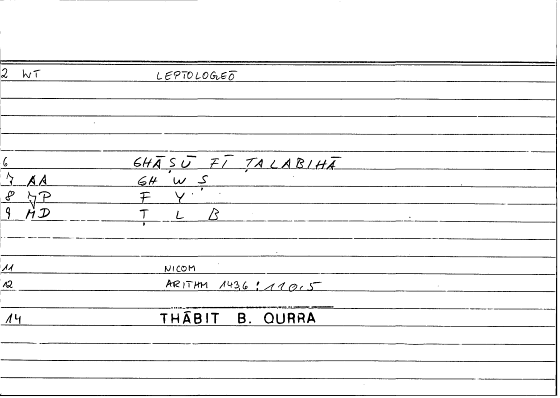 2 WT LEPTOLOGEŌ
6 GHĀṢŪ FĪ ṬALABIHĀ
7 AA GH W Ṣ
8 NP F Y
9 MD Ṭ L B
11 NICOM
12 ARITHM 143,6 : 110,5
14 THĀBIT B. QURRA